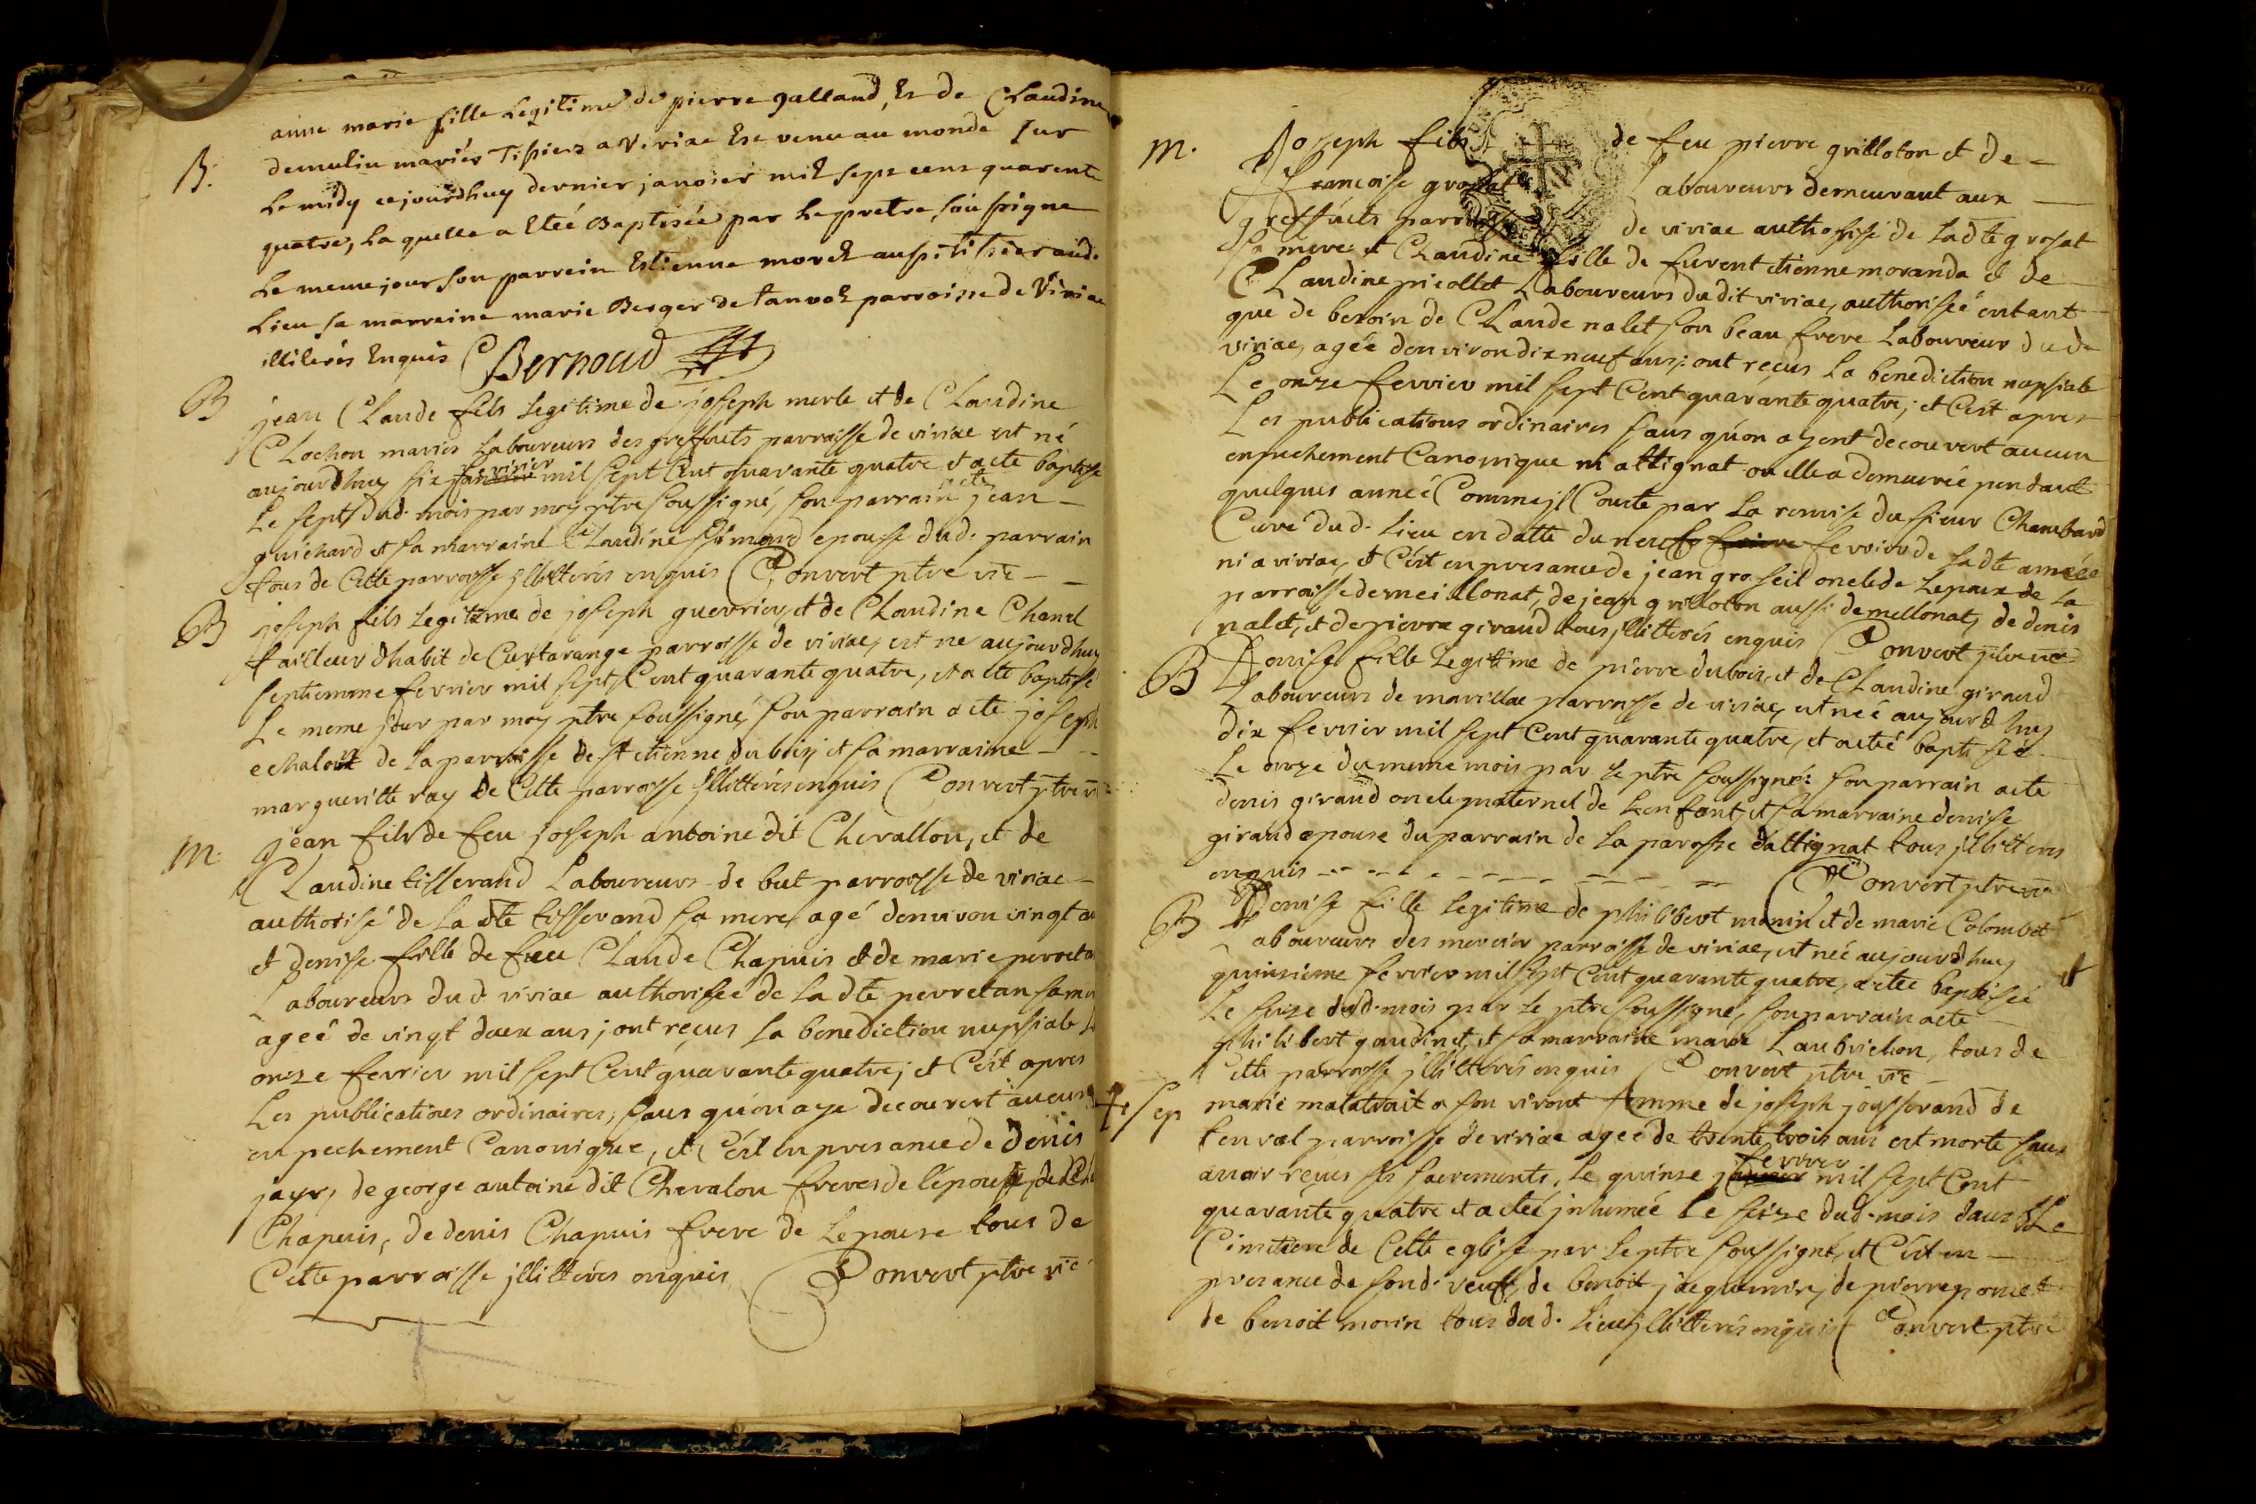 anne marie fille Legitime de pierre galland, Et de Claudine
B.
demulin mariés Tisiers a Viriac Est venu au monde Sur
Le midy cejourdhuy dernier janvier mil sept cens quarente
quatre, La quelle a Eteé Baptisée par Le pretre Soussigne
Le meme jour son parrein Estienne morel aussi tisier aud.
Lieu sa marreine marie Berger de tanvol parroisse de Viriac
illiterés Enquis Bernoud
B
jean Claude fils legitime de joseph merle et de Claudine
Clochon mariés Laboureurs des greffets parroisse de viriac est né
aujourdhuy six fevrier mil sept Cent quarante quatre et a ete baptisé
Le sept dud. mois par moy ptre soussigné, son parrain a ete jean
guichard et sa marraine Claudine epouse dud. parrain
tous de Cette parroisse jllitterés enquis Convert ptre vic
B
joseph fils legitime de joseph guerrier, et de Claudine Chanel
tailleur dhabit de Curtarange parroisse de viriac, est ne aujourdhuy
septiemme fevrier mil sept Cent quarante quatre, et a ete baptisé
Le meme jour par moy ptre soussigné, son parrain a ete joseph
echalon de la parroisse de st etienne du bois et sa marraine
margueritte ray de Cette parroisse jllitterés enquis Convert ptre vic
M.
jean fils de feu joseph antoine dit Chevallon, et de
Claudine tisserand Laboureurs de but parroisse de viriac
authorisé de la dte tisserand sa mere, agé denviron vingt
et denise fille de feu Claude Chapuis et de marie perretan
Laboureurs dud. viriac authorisée de la dte perretan sa
ageé de vingt deux ans; ont reçus la benediction nupsiale
onze fevrier mil sept Cent quarante quatre; et C'est apres
Les publications ordinaires, sans qu'on aye decouvert aucun
enpechement Canonique, et C'est en presance de denis
jayr, de george antoine dit Chevalon freres de l'epoux, de
Chapuis, de denis Chapuis frere de Lepouse tous de
Cette parroisse jllitterés enquis Convert ptre vic
M.
Joseph fils de feu pierre grilloton et de
françoise grosat Laboureurs demeurant aux
greffets parroisse de viriac authorisé de ladte grosat
sa mere et Claudine fille de furent etienne moranda et de
Claudine picollet Laboureurs dudit viriac, authorisée entant
que de besoin de Claude nalet son beau frere Laboureur dud.
viriac, agée denviron dix neuf ans; ont reçus la benediction nupsiale
Le onze fevrier mil sept Cent quarante quatre; et C'est apres
Les publications ordinaires sans qu'on ayent decouvert aucun
enpechement Canonique ni attignat ou elle a demeuree pendant
quelques anneé Comme jl Conste par la remise du sieur Chambard
Curé dud. Lieu en datte du neuf fevrier de ladte année
ni a viriac, et C'est en presance de jean groseil oncle de Lepoux de la
parroisse de meillonat, de jean grilloton aussi de mellonat, de denis
nalet, et de pierre giraud tous jllitterés enquis Convert ptre vic
B
Denise fille Legitime de pierre dubois, et de Claudine giraud
Laboureurs de marillac parroisse de viriac, est neé aujourdhuy
dix fevrier mil sept Cent quarante quatre, et a eteé baptisée
Le onze du meme mois par le ptre soussigné: son parrain a ete
denis giraud oncle maternel de Lenfant, et sa marraine denise
giraud epouse du parrain de la parroisse dattignat tous jllitterés
enquis Convert ptre vic
B
Denise fille legitime de philibert morin et de marie Colombet
Laboureurs des mercier parroisse de viriac, est neé aujourdhuy
quinsieme fevrier mil sept Cent quarante quatre, et a etée baptisée
Le seize dud. mois par le ptre soussigné, son parrain a ete
philibert gaudinet, et sa marraine marie Laubrichon, tous de
Cette parroisse jllitterés enquis Convert ptre vic
Sep
marie malatrait a son vivant femme de joseph josserand de
tenval parroisse de viriac agee de trente trois ans est morte sans
avoir reçus ses sacrements, le quinse fevrier mil sept Cent
quarante quatre et a eteé jnhumée le seize dud. mois dans le
Cimitiere de Cette eglise par le ptre soussigné, et C'est en
presance de sond. veuf, de benoit jaquemin, de pierre poncet
de benoit morin tous dud. Lieu jllitterés enquis Convert ptre